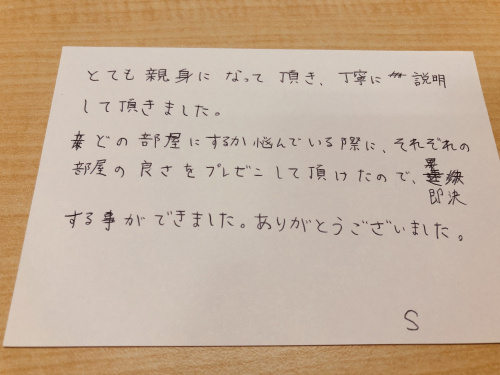 とても親身になって頂き、丁寧に説明
して頂きました。
どの部屋にするか悩んでいる際に、それぞれの
部屋の良さをプレゼンして頂けたので、
即決
する事ができました。ありがとうございました。
S